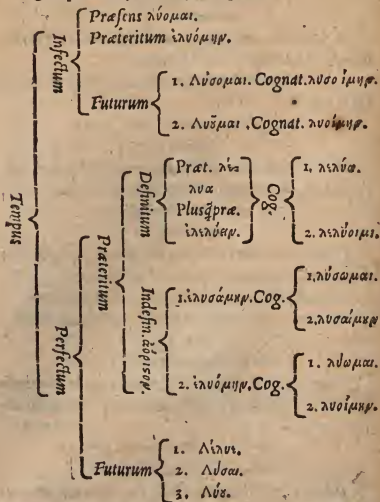 Tempus
Infectum
Præsens λύομαι.
Præteritum ἐλυόμην.
Futurum
1. Λύσομαι. Cognat. λυσοίμην.
2. Λυοῦμαι, Cognat. λυοίμην.
Perfectum
Præteritum
Definitum
Præt. λέ-
λυα
Plusq̃præ.
ἐλελύειν.
Cog.
1. λελύω.
2. λελύοιμι.
Indefin. ἀόριστον.
1. ἐλυσάμην. Cog.
1. λύσωμαι.
2. λυσαίμην
2. ἐλυόμην. Cog.
1. λύωμαι.
2. λυοίμην.
Futurum
1. Λέλυε.
2. Λύσαι.
3. Λύου.